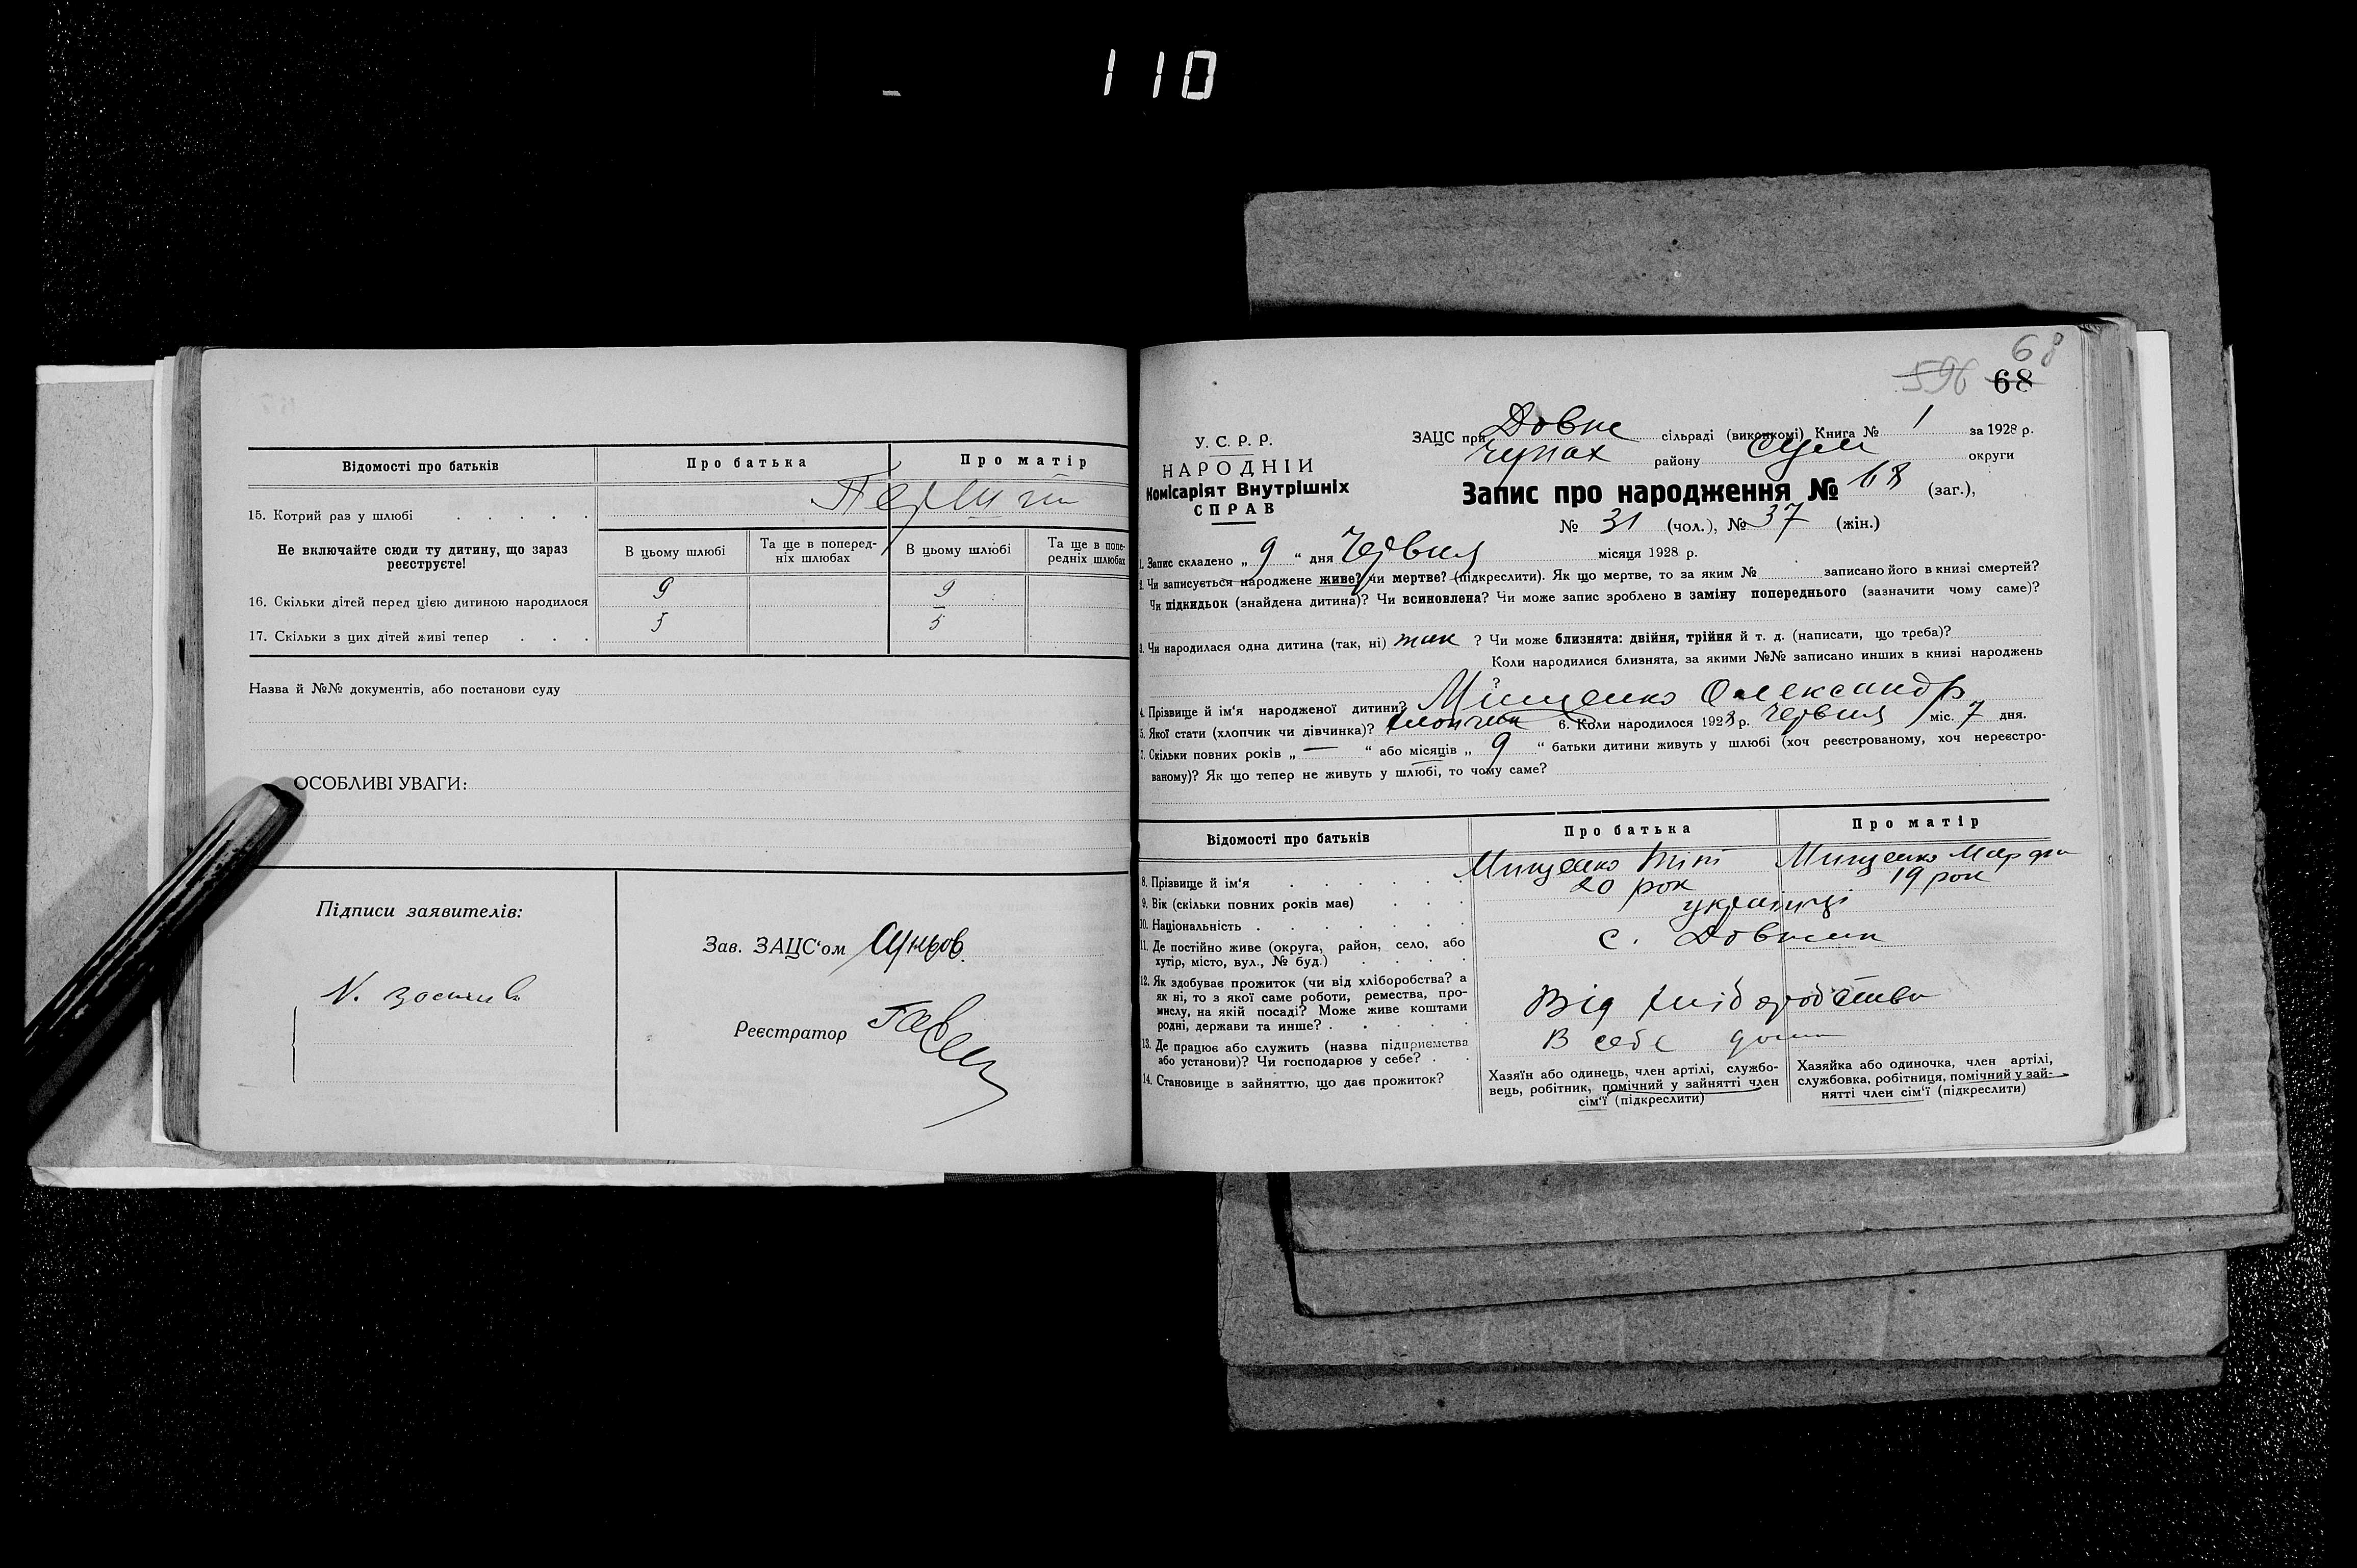 110
Відомості про батьків
Про батька
Про матір
15. Котрий раз у шлюбі
Перший
Не включайте сюди ту дитину, що зараз
реєструєте!
В цьому шлюбі
Та ще в поперед-
ніх шлюбах
В цьому шлюбі
Та ще в попе-
редніх шлюбах
16. Скільки дітей перед цією дитиною народилося
9
9
17. Скільки з цих дітей живі тепер
5
5
Назва й №№ документів, або постанови суду
ОСОБЛИВІ УВАГИ:
Підписи заявителів:
Зав. ЗАЦС'ом
Реєстратор
68
596 68
У. С. Р. Р.
НАРОДНІЙ
Комісаріят Внутрішніх
СПРАВ
ЗАЦС при Довже сільраді (виконкомі) Книга № 1 за 1928 р.
Чупах району Сум округи
Запис про народження № 68 (заг.),
№ 31 (чол.), № 37 (жін.)
1. Запис складено „ 9 “ дня Червня місяця 1928 р.
2. Чи записується народжене живе? чи мертве? (підкреслити). Як що мертве, то за яким № записано його в книзі смертей?
Чи підкидьок (знайдена дитина)? Чи всиновлена? Чи може запис зроблено в заміну попереднього (зазначити чому саме)?
3. Чи народилася одна дитина (так, ні) так ? Чи може близнята: двійня, трійня й т. д. (написати, що треба)?
Коли народилися близнята, за якими №№ записано инших в книзі народжень
4. Прізвище й ім'я народженої дитини? Міщенко Олександр
5. Якої стати (хлопчик чи дівчинка)? хлопчик 6. Коли народилося 1928 р. Червня міс. 7 дня.
7. Скільки повних років „ — “ або місяців „ 9 “ батьки дитини живуть у шлюбі (хоч реєстрованому, хоч нереєстро-
ваному)? Як що тепер не живуть у шлюбі, то чому саме?
Відомості про батьків
Про батька
Про матір
8. Прізвище й ім'я
Мищенко Тіт
Мищенко Марфа
9. Вік (скільки повних років має)
20 рок
19 рок
10. Національність
українці
11. Де постійно живе (округа, район, село, або
хутір, місто, вул., № буд.)
с. Довжик
12. Як здобуває прожиток (чи від хліборобства? а
як ні, то з якої саме роботи, ремества, про-
мислу, на якій посаді? Може живе коштами
родні, держави та инше?
Від хліборобства
13. Де працює або служить (назва підприємства
або установи)? Чи господарює у себе?
В себе дома
14. Становище в зайняттю, що дає прожиток?
Хазяїн або одинець, член артілі, службо-
вець, робітник, помічний у зайнятті член
сім'ї (підкреслити)
Хазяйка або одиночка, член артілі,
службовка, робітниця, помічний у зай-
нятті член сім'ї (підкреслити)